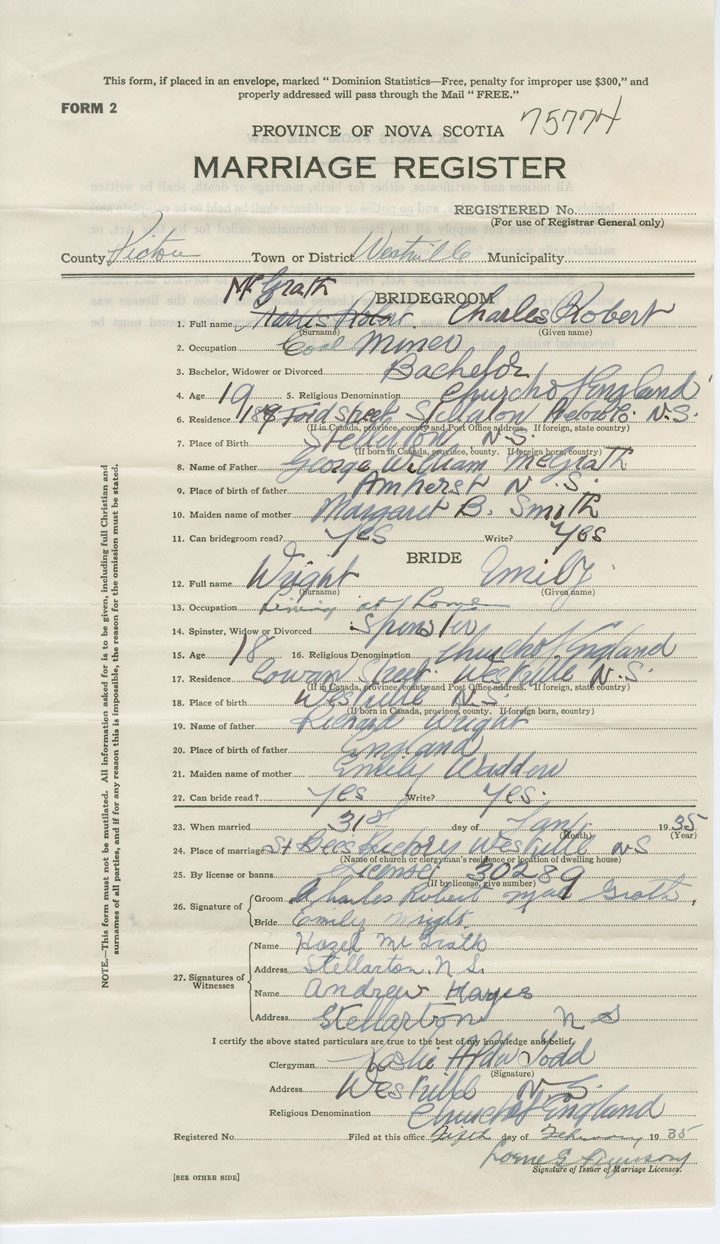 This form, if placed in an envelope, marked " Dominion Statistics—Free, penalty for improper use $300," and
properly addressed will pass through the Mail " FREE."
FORM 2
75774
PROVINCE OF NOVA SCOTIA
MARRIAGE REGISTER
REGISTERED No.
(For use of Registrar General only)
County, Pictou Town or District Westville Municipality.
McGrath
BRIDEGROOM
1. Full name Charles Robert
(Surname) (Given name)
2. Occupation Coal Miner
3. Bachelor, Widower or Divorced Bachelor
4. Age 19 5. Religious Denomination Church of England
6. Residence Foord Street Stellarton N.S.
(If in Canada, province, county and Post Office address. If foreign, state country)
7. Place of Birth Stellarton N.S.
(If born in Canada, province, county. If foreign born, country)
8. Name of Father George William McGrath
9. Place of birth of father Amherst N.S.
10. Maiden name of mother Margaret B. Smith
11. Can bridegroom read? Yes Write? Yes
BRIDE
12. Full name Wright Emily
(Surname) (Given name)
13. Occupation Living at Home
14. Spinster, Widow or Divorced Spinster
15. Age 18 16. Religious Denomination Church of England
17. Residence Cowan Street Westville N.S.
(If in Canada, province, county and Post Office address. If foreign, state country)
18. Place of birth Westville N.S.
(If born in Canada, province, county. If foreign born, country)
19. Name of father Richard Wright
20. Place of birth of father England
21. Maiden name of mother Emily Wadden
22. Can bride read? Yes Write? Yes.
23. When married 31st day of Jan. 1935
(Month) (Year)
24. Place of marriage St Bees Rectory Westville NS
(Name of church or clergyman's residence or location of dwelling house)
25. By license or banns License 30289
(If by license, give number)
26. Signature of
Groom Charles Robert Mac Grath
Bride Emily Wright
27. Signatures of Witnesses
Name Hazel McGrath
Address Stellarton. N.S.
Name Andrew Hayes
Address Stellarton N S
I certify the above stated particulars are true to the best of my knowledge and belief,
Clergyman Leslie Todd
(Signature)
Address Westville N.S.
Religious Denomination Church of England
Registered No. Filed at this office fifth day of February 1935
Lorne G
Signature of Issuer of Marriage Licenses.
[SEE OTHER SIDE]
NOTE.—This form must not be mutilated. All information asked for is to be given, including full Christian and
surnames of all parties, and if for any reason this is impossible, the reason for the omission must be stated.